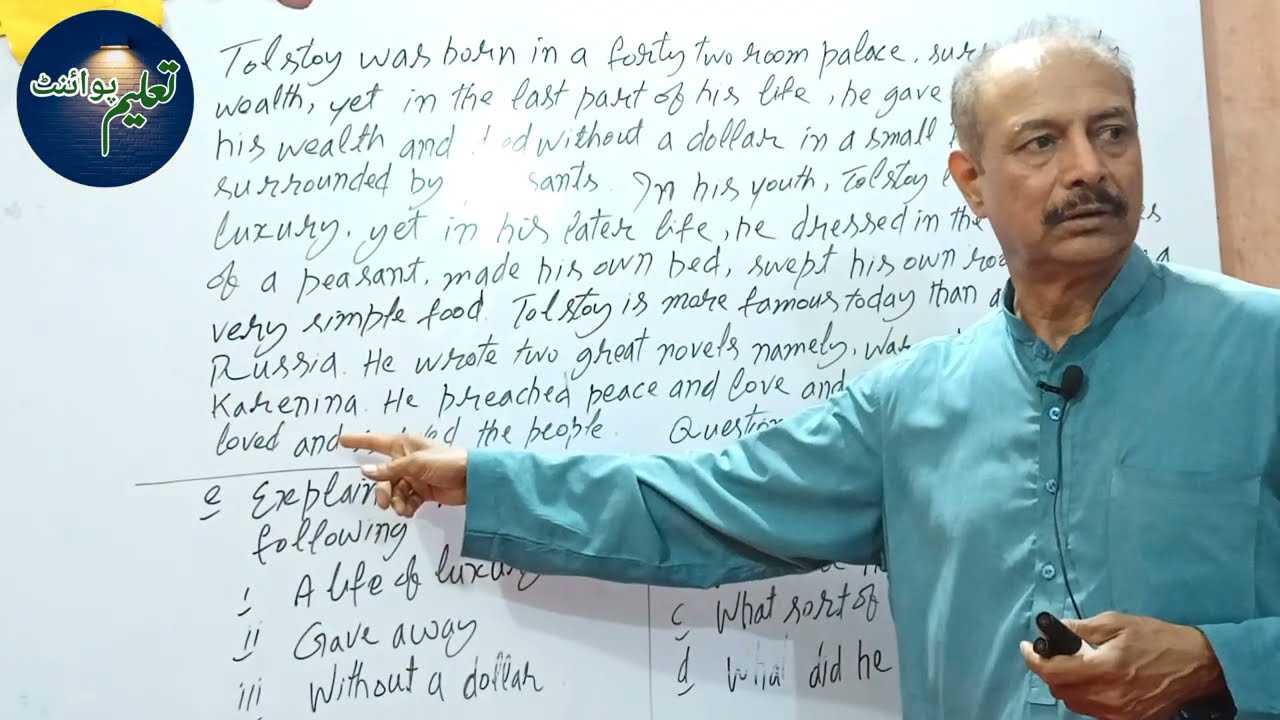 تعلیم پوائنٹ
Tolstoy was born in a forty two room palace, sur
wealth, yet in the last part of his life, he gave
his wealth and without a dollar in a small
surrounded by sants. In his youth, Tolstoy
luxury, yet in his later life, he dressed in the
of a peasant, made his own bed, swept his own a
very simple food. Tolstoy is more famous today than
Russia. He wrote two great novels namely, war
Karenina. He preached peace and love and
loved and the people. Question
e Explain
following
i A life of luxury
ii Gave away
iii Without a dollar
c What sort of
d What did he